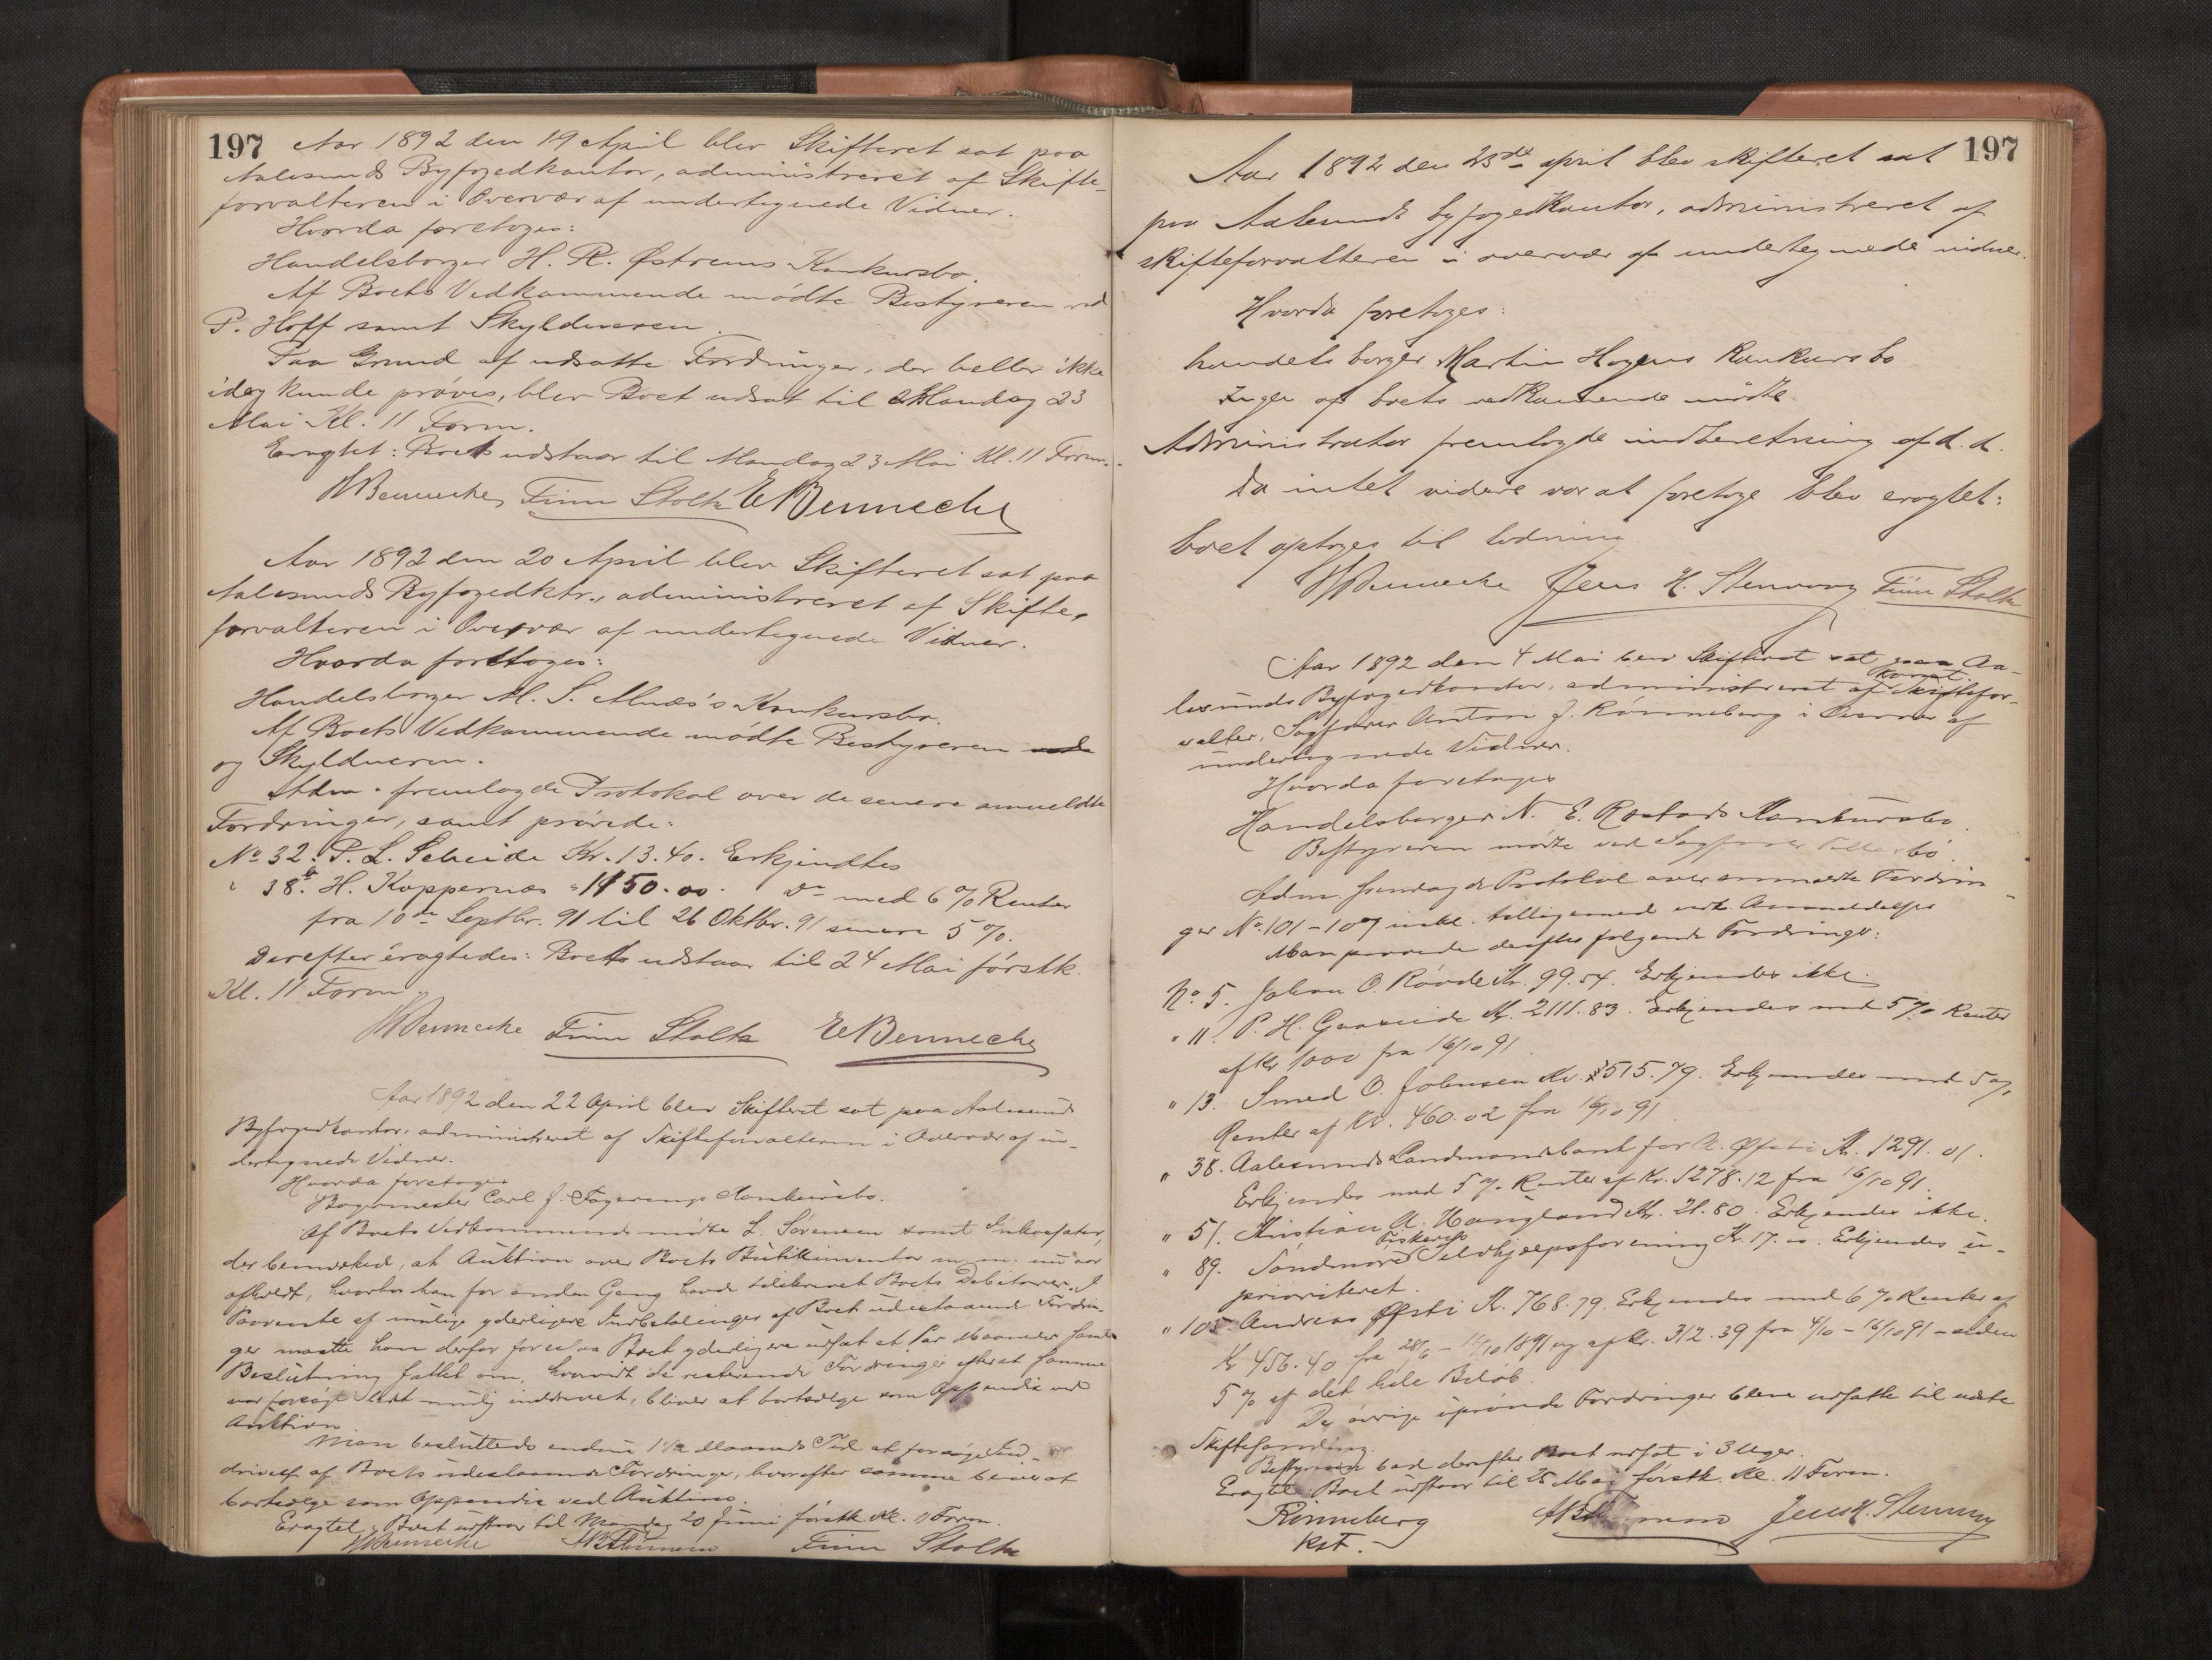 197
Aar 1892 den 19 April blev Skifteret sat paa
Aalesunds Byfogedkontor, administreret af Skifte-
forvalteren i Overvær af undertegnede Vidner.
Hvorda foretoges:
Handelsborger H. R. Østrems Konkursbo.
Af Boets Vedkommende mødte Bestyreren ved
P. Hoff samt Skyldneren.
Paa Grund af udsatte Fordringer, der heller ikke
idag kunde prøves, blev Boet udsat til Mandag 23
Mai Kl. 11 Form.
Eragtet: Boet udstaar til Mandag 23 Mai Kl. 11 Form.
Bennecke Finn Stoltz E Bennecke
Aar 1892 den 20 April blev Skifteret sat paa
Aalesunds Byfogedktr., administreret af Skifte-
forvalteren i Overvær af undertegnede Vidner.
Hvorda foretoges:
Handelsborger M. S. Alnæs's Konkursbo.
Af Boets Vedkommende mødte Bestyreren
og Skyldneren.
Adm. fremlagde Protokol over de senere anmeldte
Fordringer, samt prøvede:
No 32. P. L. Scheide Kr. 13.40. Erkjendtes
" 38b. H. Koppernæs " 1150.00. do med 6 % Renter
fra 10de Septbr. 91 til 26 Oktbr. 91 senere 5 %.
Derefter eragtedes: Boet udstaar til 24 Mai førstk.
Kl. 11 Form.
Bennecke Finn Stoltz E Bennecke
Aar 1892 den 22 April blev Skifteret sat paa Aalesunds
Byfogedkontor, administreret af Skifteforvalteren i Overvær af un-
dertegnede Vidner.
Hvorda foretoges
Bagermester Carl J. Fagerengs Konkursbo.
Af Boets Vedkommende mødte L. Sørensen samt Inkassator,
der bemærkede, at Auktion over Boets m. m. nu var
afholdt, hvorhos han for anden Gang havde tilskrevet Boets Debitorer. I
Paavente af mulige yderligere Indbetalinger af Boets udestaaende Fordrin-
ger maatte han derfor foreslaa Boet yderligere udsat et Par Maaneder samt
Beslutning fattet om, hvorvidt de resterende Fordringer efterat samme
var forsøgt bedst mulig inddrevet, bliver at bortsælge som Appendix ved
Auktion
Man besluttede endnu 1½ Maaneds Tid at forsøge Ind-
drivelse af Boets udestaaende Fordringer, hvorefter samme bliver at
bortsælge som Appendix ved Auktion.
Eragtet: Boet udstaar til Mandag 20 Juni førstk. Kl. 11 Form.
Bennecke Finn Stoltz
197
Aar 1892 den 23de april blev skifteret sat
paa Aalesunds byfogedkontor, administreret af
skifteforvalteren i overvær af undertegnede vidner.
Hvorda foretoges:
handelsborger Martin Hagens konkursbo
Ingen af boets vedkommende mødte
Administrator fremlagde indberetning af d. d.
Da intet videre var at foretage blev eragtet:
boet optages til lodning
Bennecke Jens H. Stenvaag Finn Stoltz
Aar 1892 den 4 Mai blev Skifteret sat paa Aa-
lesunds Byfogedkontor, administreret af const. Skiftefor-
valter, Sagfører Anton J. Rønneberg i Overvær af
undertegnede Vidner.
Hvorda foretoges
Handelsborger N. E. Rostads Konkursbo.
Bestyreren mødte ved Sagfører
Adm. fremlagde Protokol over anmeldte Fordrin-
ger No. 101 - 107 inkl. tilligemed Anmeldelser
Man prøvede derefter følgende Fordringer:
No 5. Johan O. Røvde Kr. 99.54. Erkjendes ikke.
" 11. P. H. Gaaseide Kr. 2111.83. Erkjendes med 5 % Renter
af Kr 1000 fra 16/10 91.
" 13. Smed O. Johnsen Kr. 515.79. Erkjendes med 5 %
Renter af Kr. 460.02 fra 16/10 91
" 38. Aalesunds Landmandsbank for A. Øfsti Kr. 1291.01.
Erkjendes med 5 % Renter af Kr. 1278.12 fra 16/10 91.
" 51. Kristian A. Haugland Kr. 21.80. Erkjendes ikke.
" 89. Søndmøre Fiskeres Selvhjælpsforening Kr. 17.00. Erkjendes u-
prioriteret.
" 105 Andreas Øfsti Kr. 768.79. Erkjendes med 6 % Renter af
Kr 456.40 fra 28/6 - 16/10 1891 og af Kr. 312.39 fra 4/10 - 16/10 91 - siden
5 % af det hele Beløb.
De øvrige uprøvede Fordringer bleve udsatte til næste
Skiftesamling.
Bestyreren bad derefter Boet udsat i 3 Uger.
Eragtet: Boet udstaar til 25 Mai førstk. Kl. 11 Form.
Rønneberg Jens H. Stenvaag
Kst.